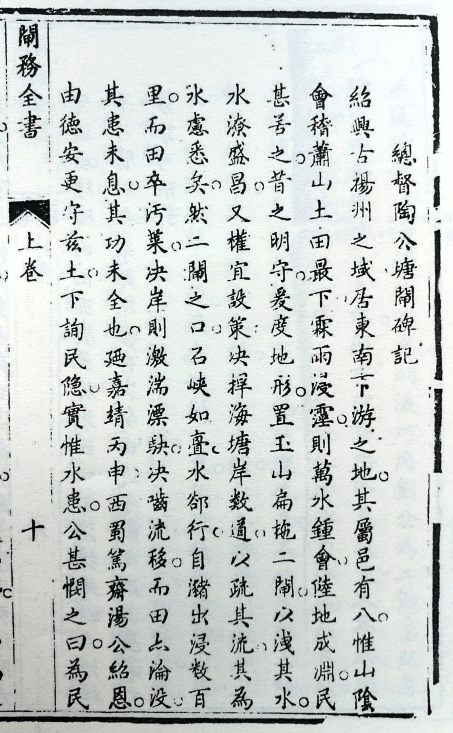 總督陶公塘閘碑記
紹興古揚州之域居東南下游之地其屬邑有八惟山陰
會稽蕭山土田最下霖雨浸霪則萬水鍾會陸地成淵民
甚苦之昔之明守爰度地形置玉山扁拖二閘以洩其水
水潦盛昌又權宜設策決捍海塘岸數道以疏其流其為
水慮悉矣然二閘之口石峽如亹水郤行自瀦出浸數百
里而田卒汚萊决岸則激湍漂駃决嚙流移而田亦淪沒
其患未息其功未全也廼嘉靖丙申西蜀篤齋湯公紹恩
由德安更守兹土下詢民隐實惟水患公甚憫之曰為民
閘務全書
上卷
十